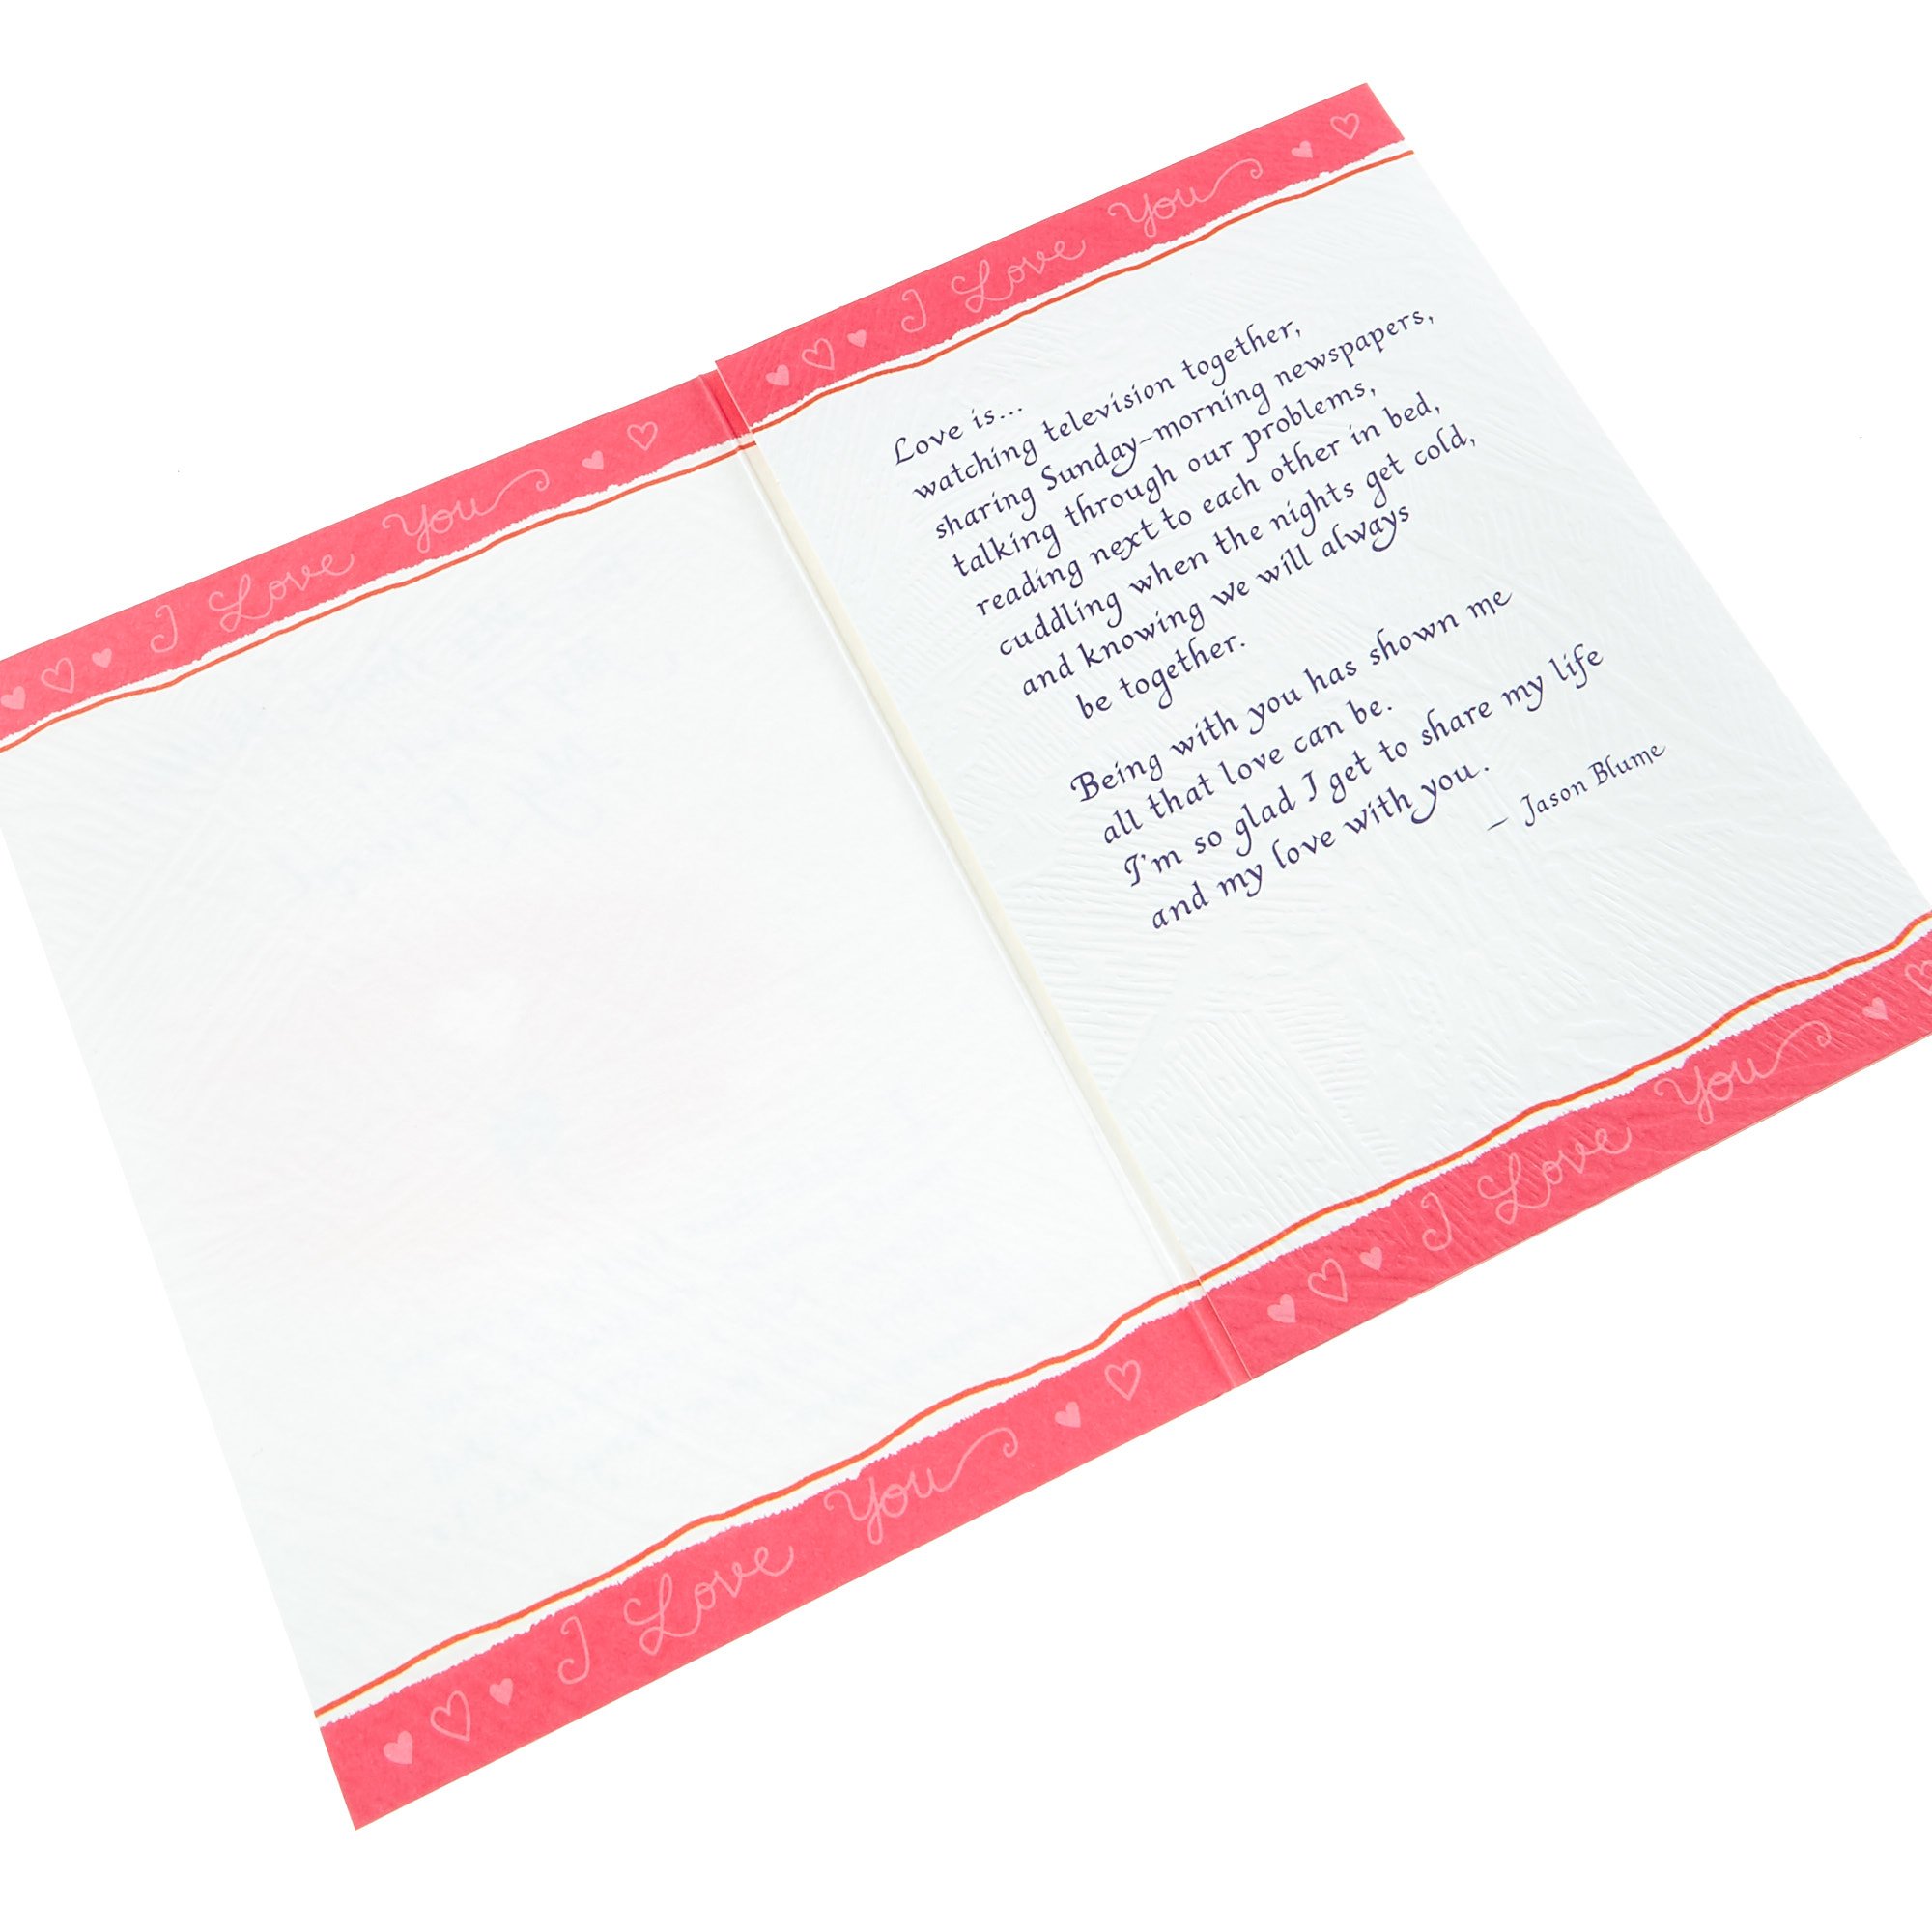 I Love You
I Love You
Love is...
watching television together,
sharing Sunday-morning newspapers,
talking through our problems,
reading next to each other in bed,
cuddling when the nights get cold,
and knowing we will always
be together.
Being with you has shown me
all that love can be.
I'm so glad I get to share my life
and my love with you.
– Jason Blume
I Love You
I Love You